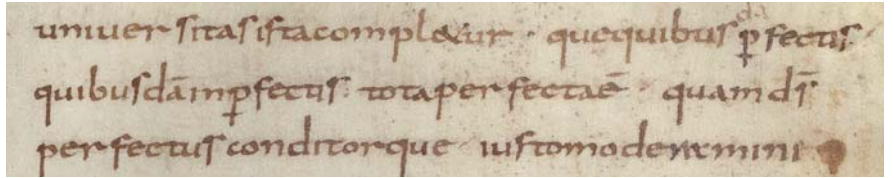 uniuersitas ista complectitur · quequibus ꝑfectis
quibusdā inꝑfectis · tota perfecta ē · quam d̄s
perfectus conditorque iusto moderamini